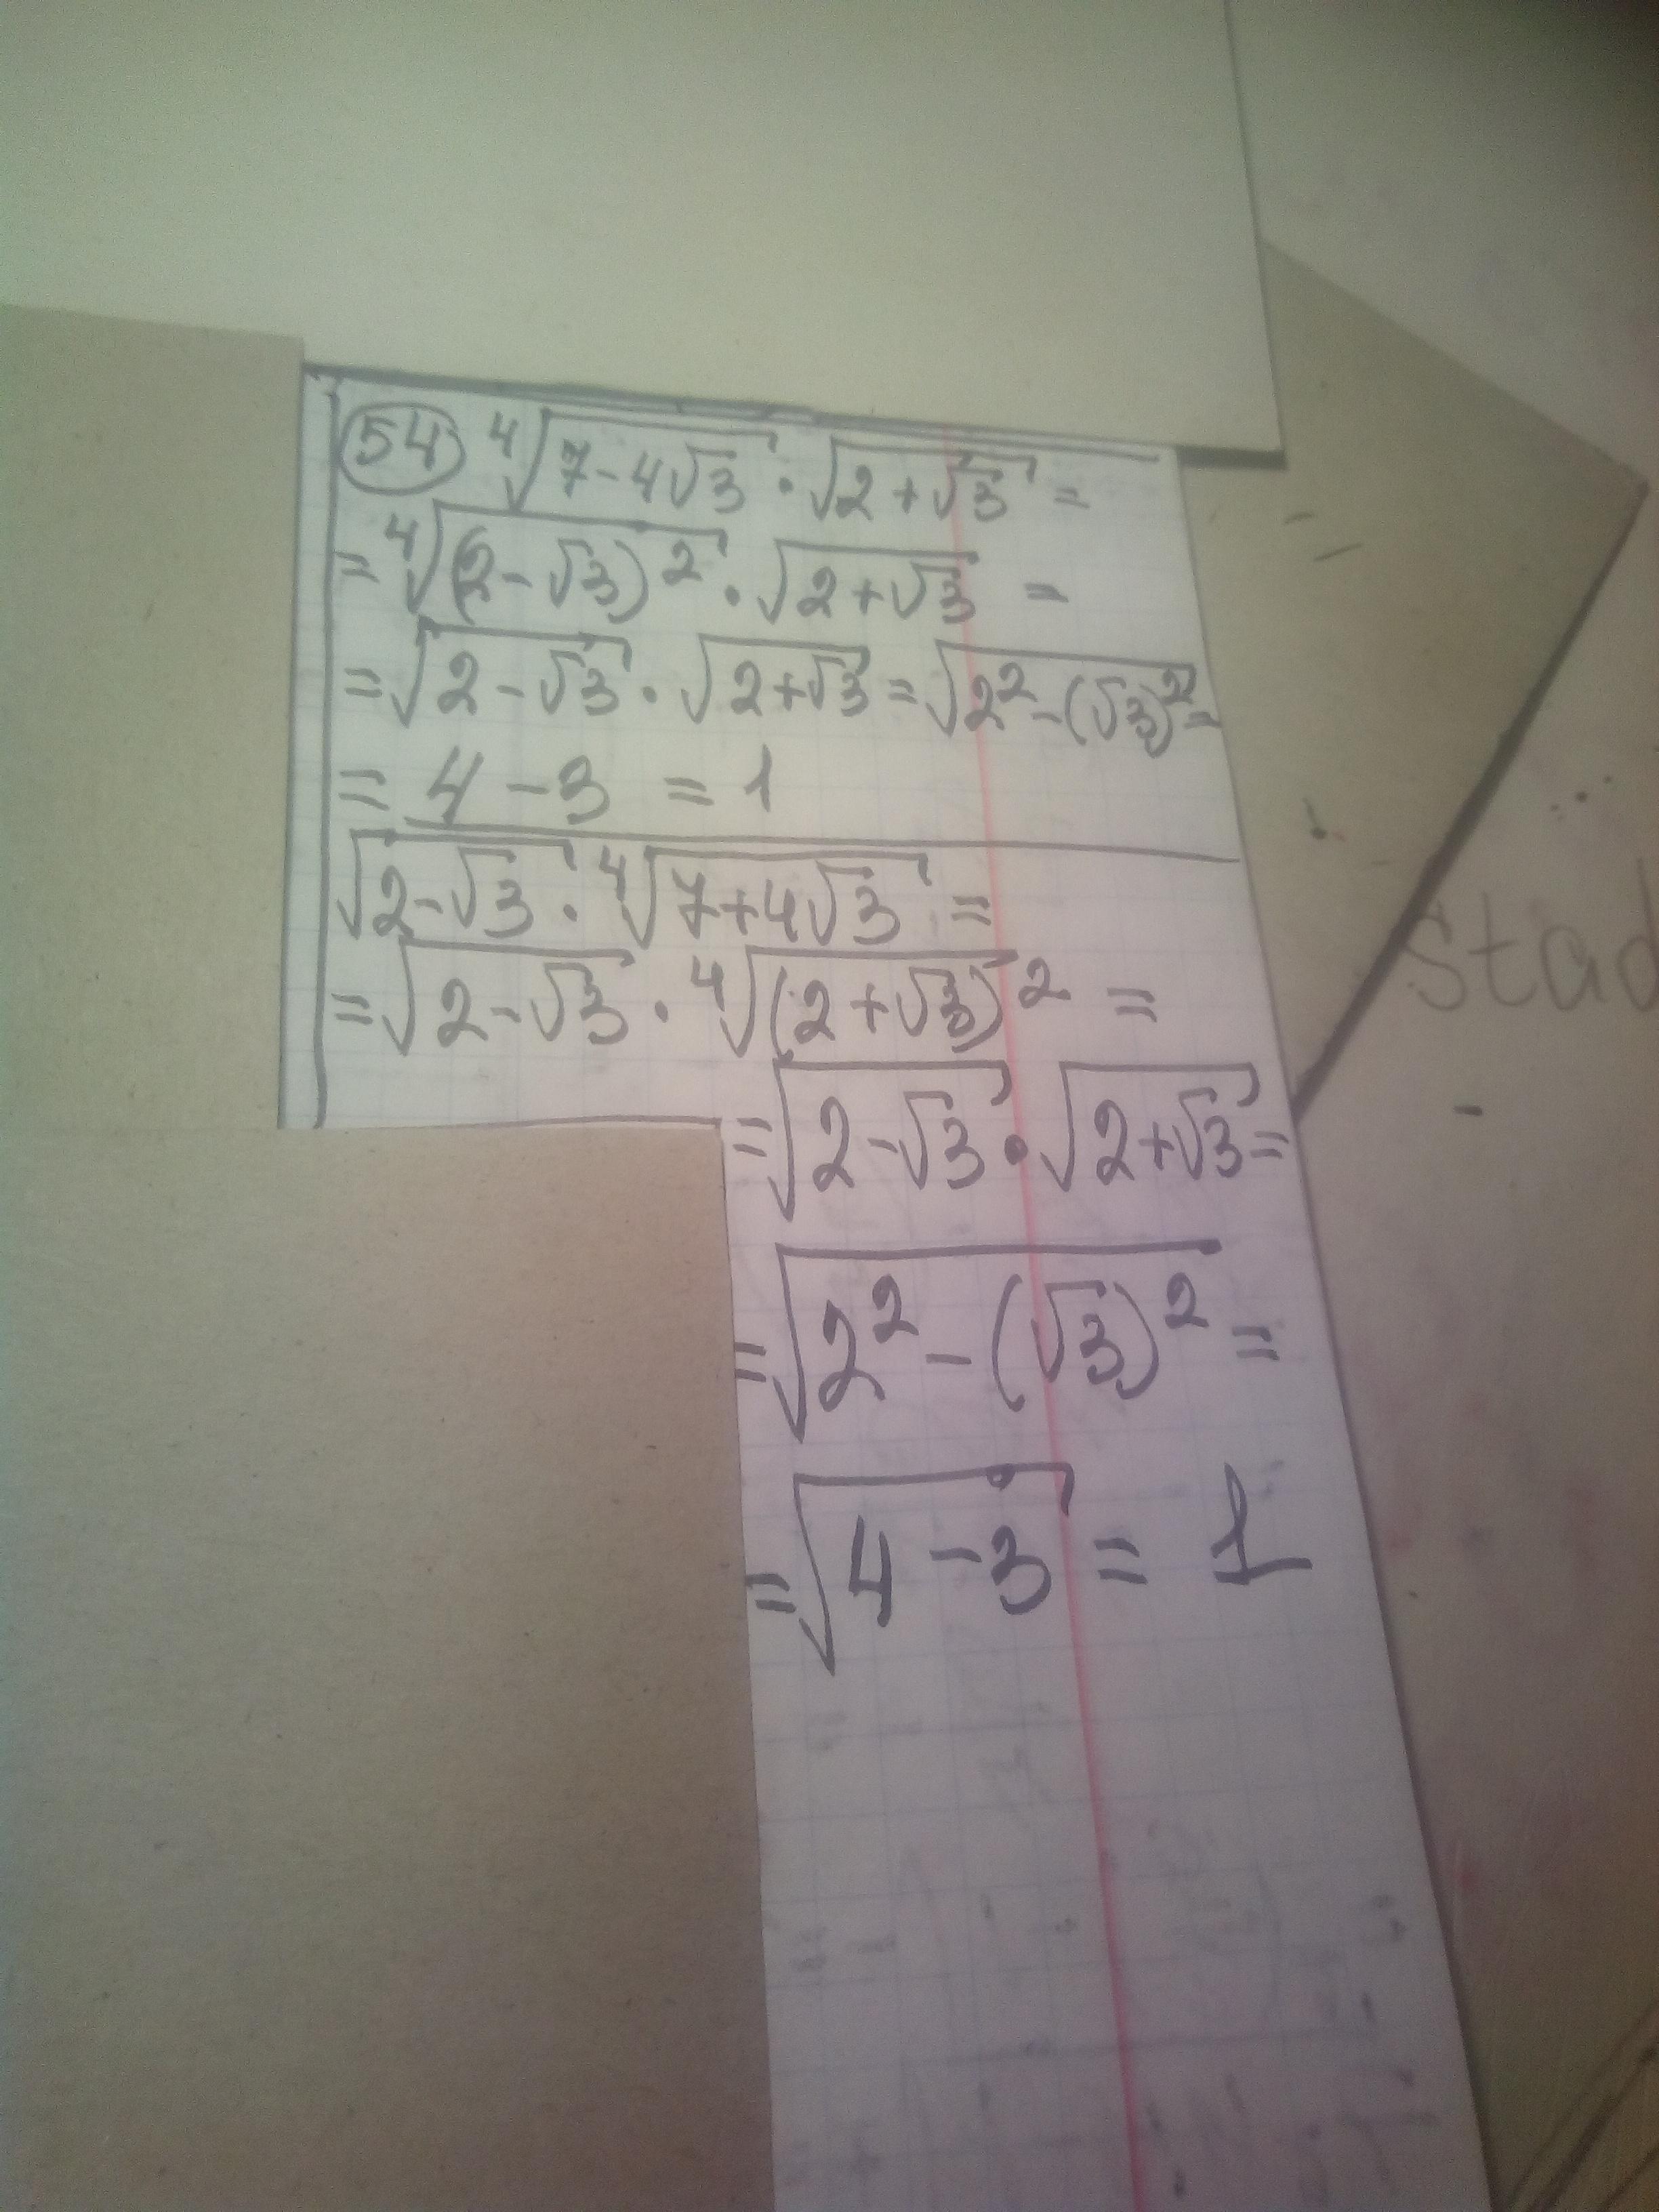 54 ⁴√(7-4√3) · √(2+√3) =
= ⁴√((2-√3)²) · √(2+√3) =
= √(2-√3) · √(2+√3) = √(2²-(√3)²) =
= 4-3 = 1
√(2-√3) · ⁴√(7+4√3) =
= √(2-√3) · ⁴√(2+√3)² =
= √(2-√3) · √(2+√3) =
= √(2²-(√3)²) =
= √(4-3) = 1
stad